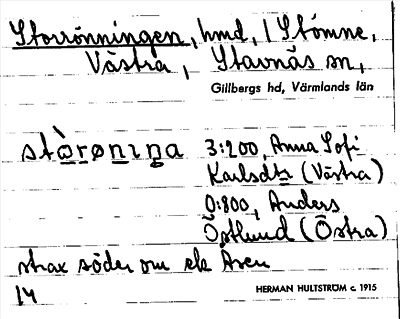 Storrönningen, hmd, / Stömne,
Västra, Stavnäs sn,
Gillbergs hd, Värmlands län
stòrønıŋa 3:200, Anna Sofi
Karlsdtr (Västra)
0:800, Anders
Östlund (Östra)
strax söder om ek Åsen
14
HERMAN HULTSTRÖM c. 1915